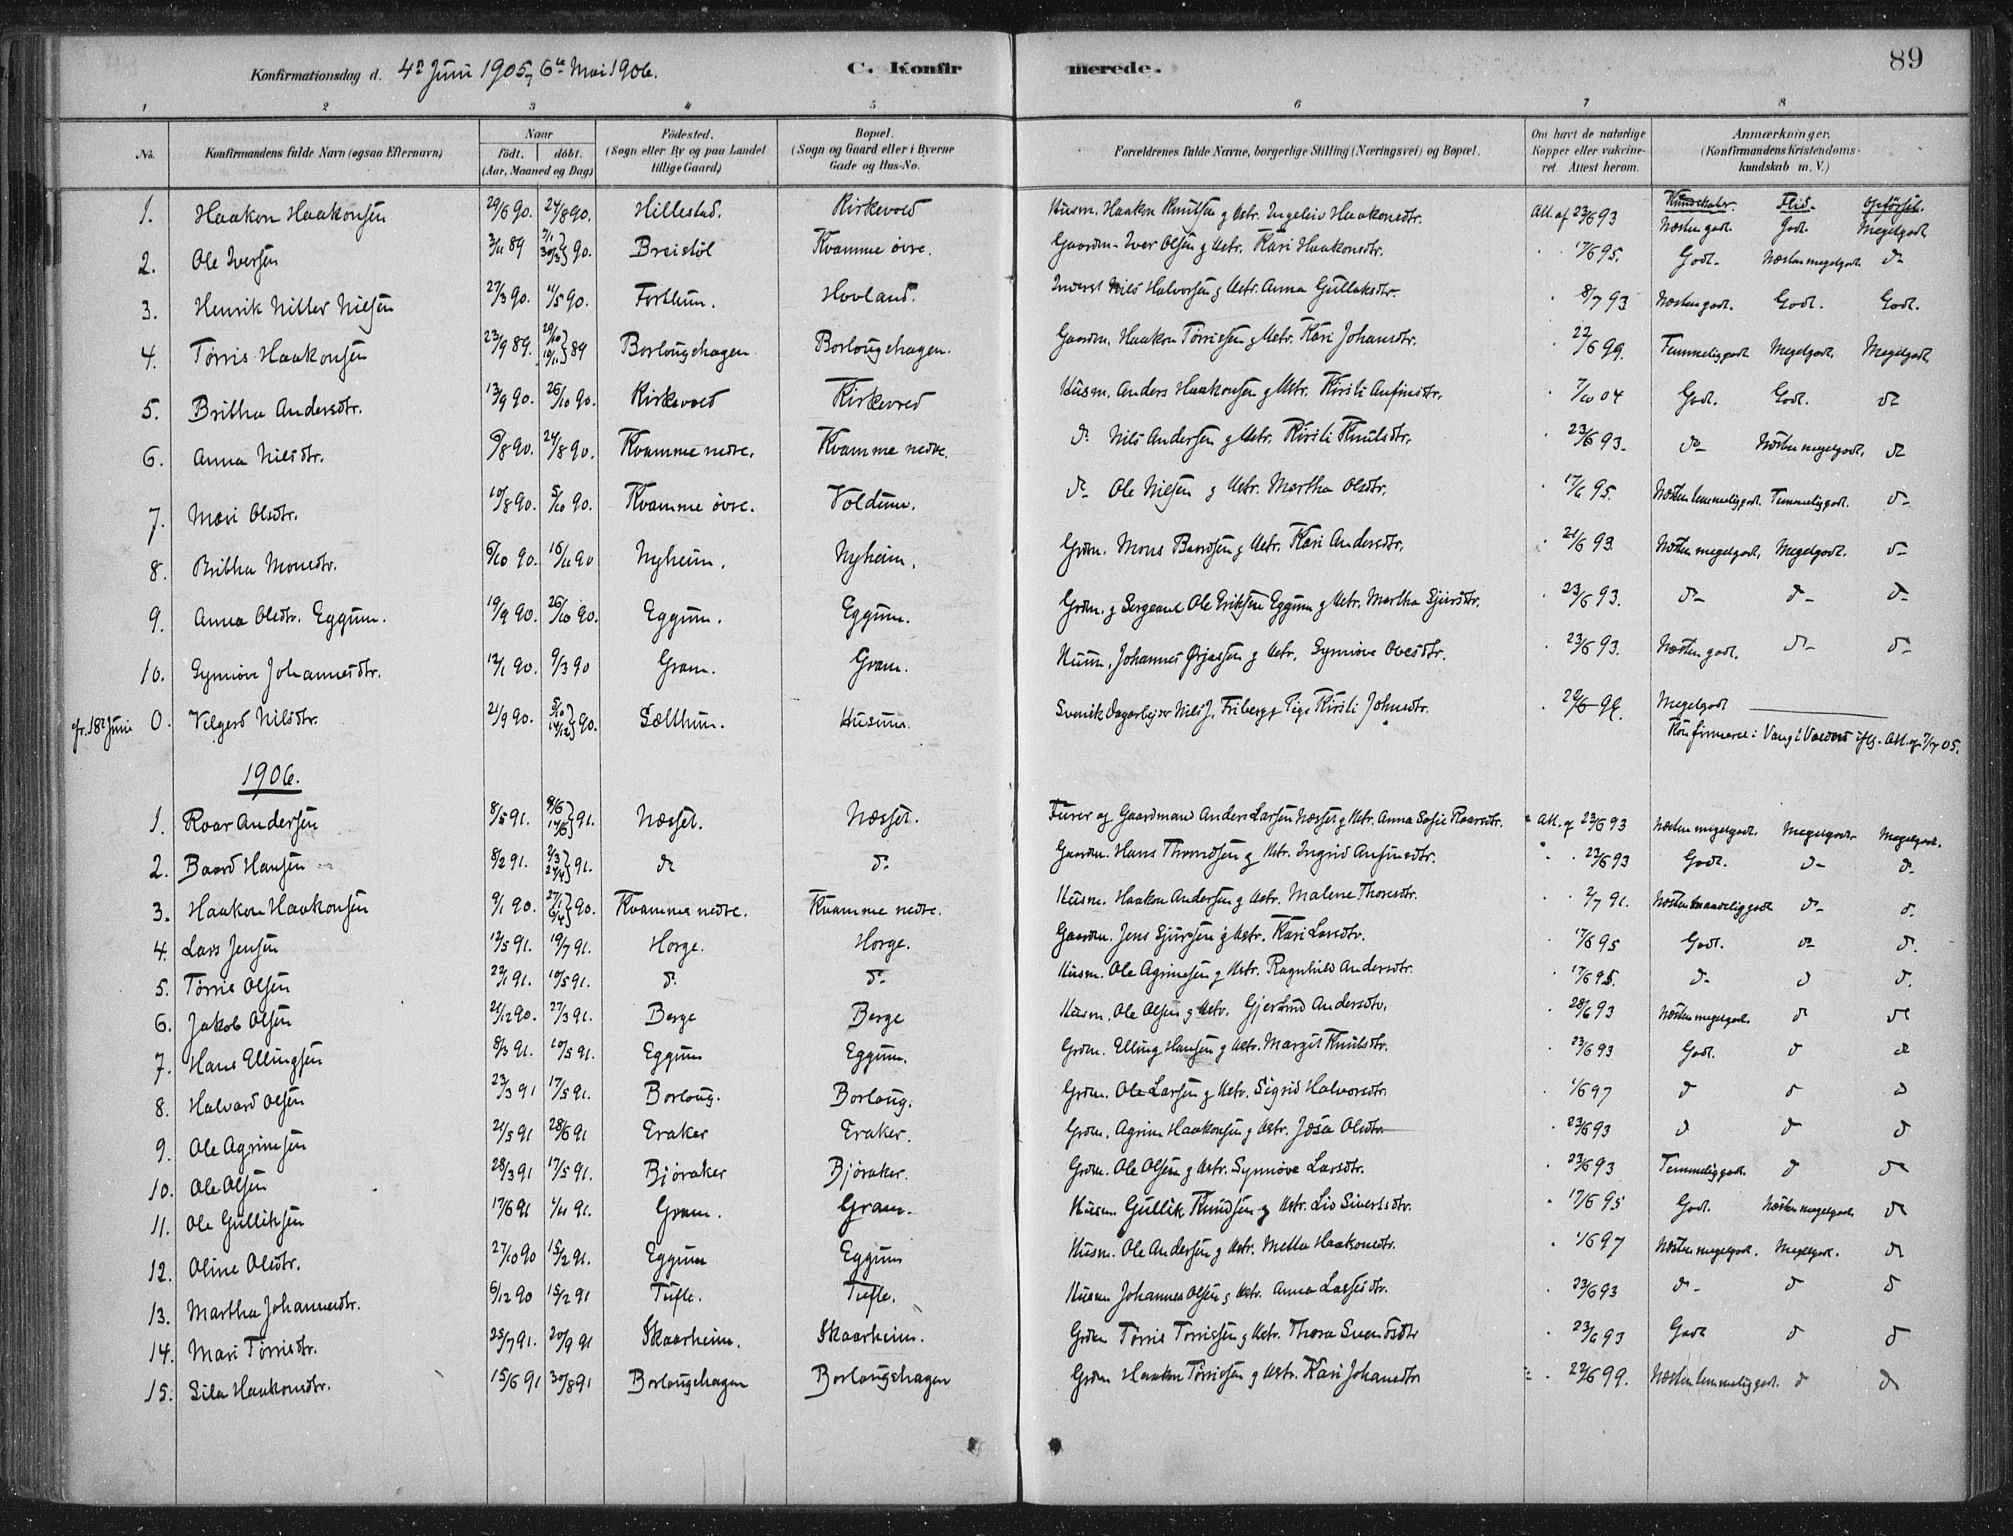 Konfirmationsdag d. 4de Juni 1905, 6te Mai 1906. C. Konfir merede. 89
1 2 3 4 5 6 7 8
No. Konfirmandens fulde Navn (ogsaa Efternavn) Naar født. døbt. (Aar, Maaned og Dag) Fødested. (Sogn eller By og paa Landet tillige Gaard) Bopæl. (Sogn og Gaard eller i Byerne Gade og Hus-No. Forældrenes fulde Navne, borgerlige Stilling (Næringsvei) og Bopæl. Om havt de naturlige Kopper eller vakcineret Attest herom. Anmærkninger. (Konfirmandens Kristendomskundskab m. V.)
Kundskaber. Flid. Opførsel.
1. Haakon Haakonsen 29/6 90. 24/8 90. Hillestad. Kirkevold Husm. Haakon Knutsen g Ustr. Ingeleiv Haakonsdtr. Att. af 23/6 93 Næsten godt. Godt. Megetgodt
2. Ole Iversen 3/11 89 30/3 90. Breistøl Kvamme øvre. Gaardm. Iver Olsen g Ustr. Kari Haakonsdtr. 17/6 95. Godt. Næsten megetgodt do
3. Henrik Nitter Nilsen 27/3 90. 11/5 90. Forthun. Hovland. Inderst Nils Halvorsen g Ustr. Anna Gullaksdtr. 8/7 93 Næsten godt. Godt. Godt.
4. Tørris Haakonsen 23/9 89. 20/10 89 Borlougshagen Borlougshagen. Gaardm. Haakon Tørrissen g Ustr. Kari Johansdtr. 22/6 99. Temmelig godt Megetgodt. Megetgodt
5. Britha Andersdtr. 13/9 90. 26/10 90. Kirkevold Kirkevold Husm. Anders Haakonsen g Ustr. Kirsti Anfinsdtr. 7/10 04 Godt. Godt. do
6. Anna Nilsdtr. 6/8 90. 24/8 90. Kvamme nedre. Kvamme nedre. do Nils Andersen g Ustr. Kirsti Knutsdtr. 23/6 93. do Næsten megetgodt. do
7. Mari Olsdtr. 10/8 90. 5/10 90. Kvamme øvre. Voldum. do Ole Nilsen g Ustr. Martha Olsdtr. 17/6 95. Næsten temmelig godt. Temmelig godt. do
8. Britha Monsdtr. 6/10 90. 16/11 90 Nyheim. Nyheim. Grdm. Mons Baardsen g Ustr. Kari Andersdtr. 21/6 93. Næsten megetgodt. Megetgodt. do
9. Anna Olsdtr. Eggum. 19/9 90. 26/10 90. Eggum. Eggum. Grdm. g Sergeant Ole Eriksen Eggum g Ustr. Martha Sjursdtr. 23/6 93. do do do
10. Synnøve Johannesdtr. 12/1 90. 9/3 90 Gram. Gram. Husm. Johannes Ørjassen g Ustr. Synnøve Olesdtr. 23/6 93. Næsten godt. do do
fr. 18de Juni 0. Velgerd Nilsdtr. 21/9 90. 5/10 14/12 90. Sælthun. Husum. Svensk Dagarbejder Nils J. Friberg g Pige Kirsti Johnsdtr. 22/6 99. Megetgodt
Konfirmeret i Vang i Valders iflg. Att. af 7/7 05.
1906.
1. Roar Andersen 8/5 91. 14/6 91. Næsset. Næsset. Furer og Gaardmand Anders Larsen Næsset g Ustr. Anna Sofie Roarsdtr. Att. af 23/6 93 Næsten megetgodt. Megetgodt Megetgodt.
2. Baard Hansen 8/2 91. 2/3 24/4 91. do do Gaardm. Hans Thomdsen g Ustr. Ingrid Anfinsdtr. 23/6 93 Godt. do do
3. Haakon Haakonsen 9/1 90. 27/1 6/4 90. Kvamme nedre. Kvamme nedre. Husm. Haakon Andersen g Ustr. Malene Thoresdtr. 2/7 91. do do
4. Lars Jensen 12/5 91. 19/7 91. Horge. Horge. Gaardm. Jens Sjursen g Ustr. Kari Larsdtr. 17/6 95 Godt. do do
5. Tørris Olsen 22/1 91. 10/5 91. do do Husm. Ole Agrimsen g Ustr. Ragnhild Andersdtr. 17/6 95. do do do
6. Jakob Olsen 21/12 90. 27/3 91. Berge Berge Husm. Ole Olsen g Ustr. Gjertrud Andersdtr. 28/6 93 Næsten megetgodt. do do
7. Hans Ellingsen 8/3 91. 10/5 91. Eggum Eggum. Grdm. Elling Hansen g Ustr. Margit Knutsdtr. 23/6 93 Godt. do do
8. Halvard Olsen 23/3 91 17/5 91. Borloug. Borloug. Grdm. Ole Larsen g Ustr. Sigrid Halvorsdtr. 1/6 97 do do do
9. Ole Agrimsen 21/5 91 28/6 91 Eraker Eraker. Grdm. Agrim Haakonsen g Ustr. Jøsa Olsdtr. 23/6 93 do do do
10. Ole Olsen 28/3 91 17/5 91. Bjøraker Bjøraker. Grdm. Ole Olsen g Ustr. Synnøve Larsdtr. 23/6 93 Temmelig godt. do do
11. Ole Gulliksen 17/6 91 1/11 91. Gram. Gram. Husm. Gullik Knudsen g Ustr. Liv Sivertsdtr. 17/6 95 Godt. Næsten megetgodt. do
12. Oline Olsdtr. 27/10 90 15/2 91. Eggum Eggum Husm. Ole Andersen g Ustr. Metta Haakonsdtr. 1/6 97 Næsten megetgodt. Megetgodt. do
13. Martha Johannesdtr. 6/12 90 15/2 91 Tufte. Tufte. Husm Johannes Olsen g Ustr. Anna Larsesdtr. 23/6 93 do do do
14. Mari Tørrisdtr. 25/7 91. 20/9 91 Skaarheim. Skaarheim. Grdm Tørris Torrissen g Ustr. Thora Svendsdtr 23/6 93 Godt do do
15. Sila Haakonsdtr. 15/6 91 30/8 91 Borlougshagen Borlougshagen Grdm Haakon Tørrissen g Ustr. Kari Johansdtr 22/6 99. Næsten temmelig godt. do do